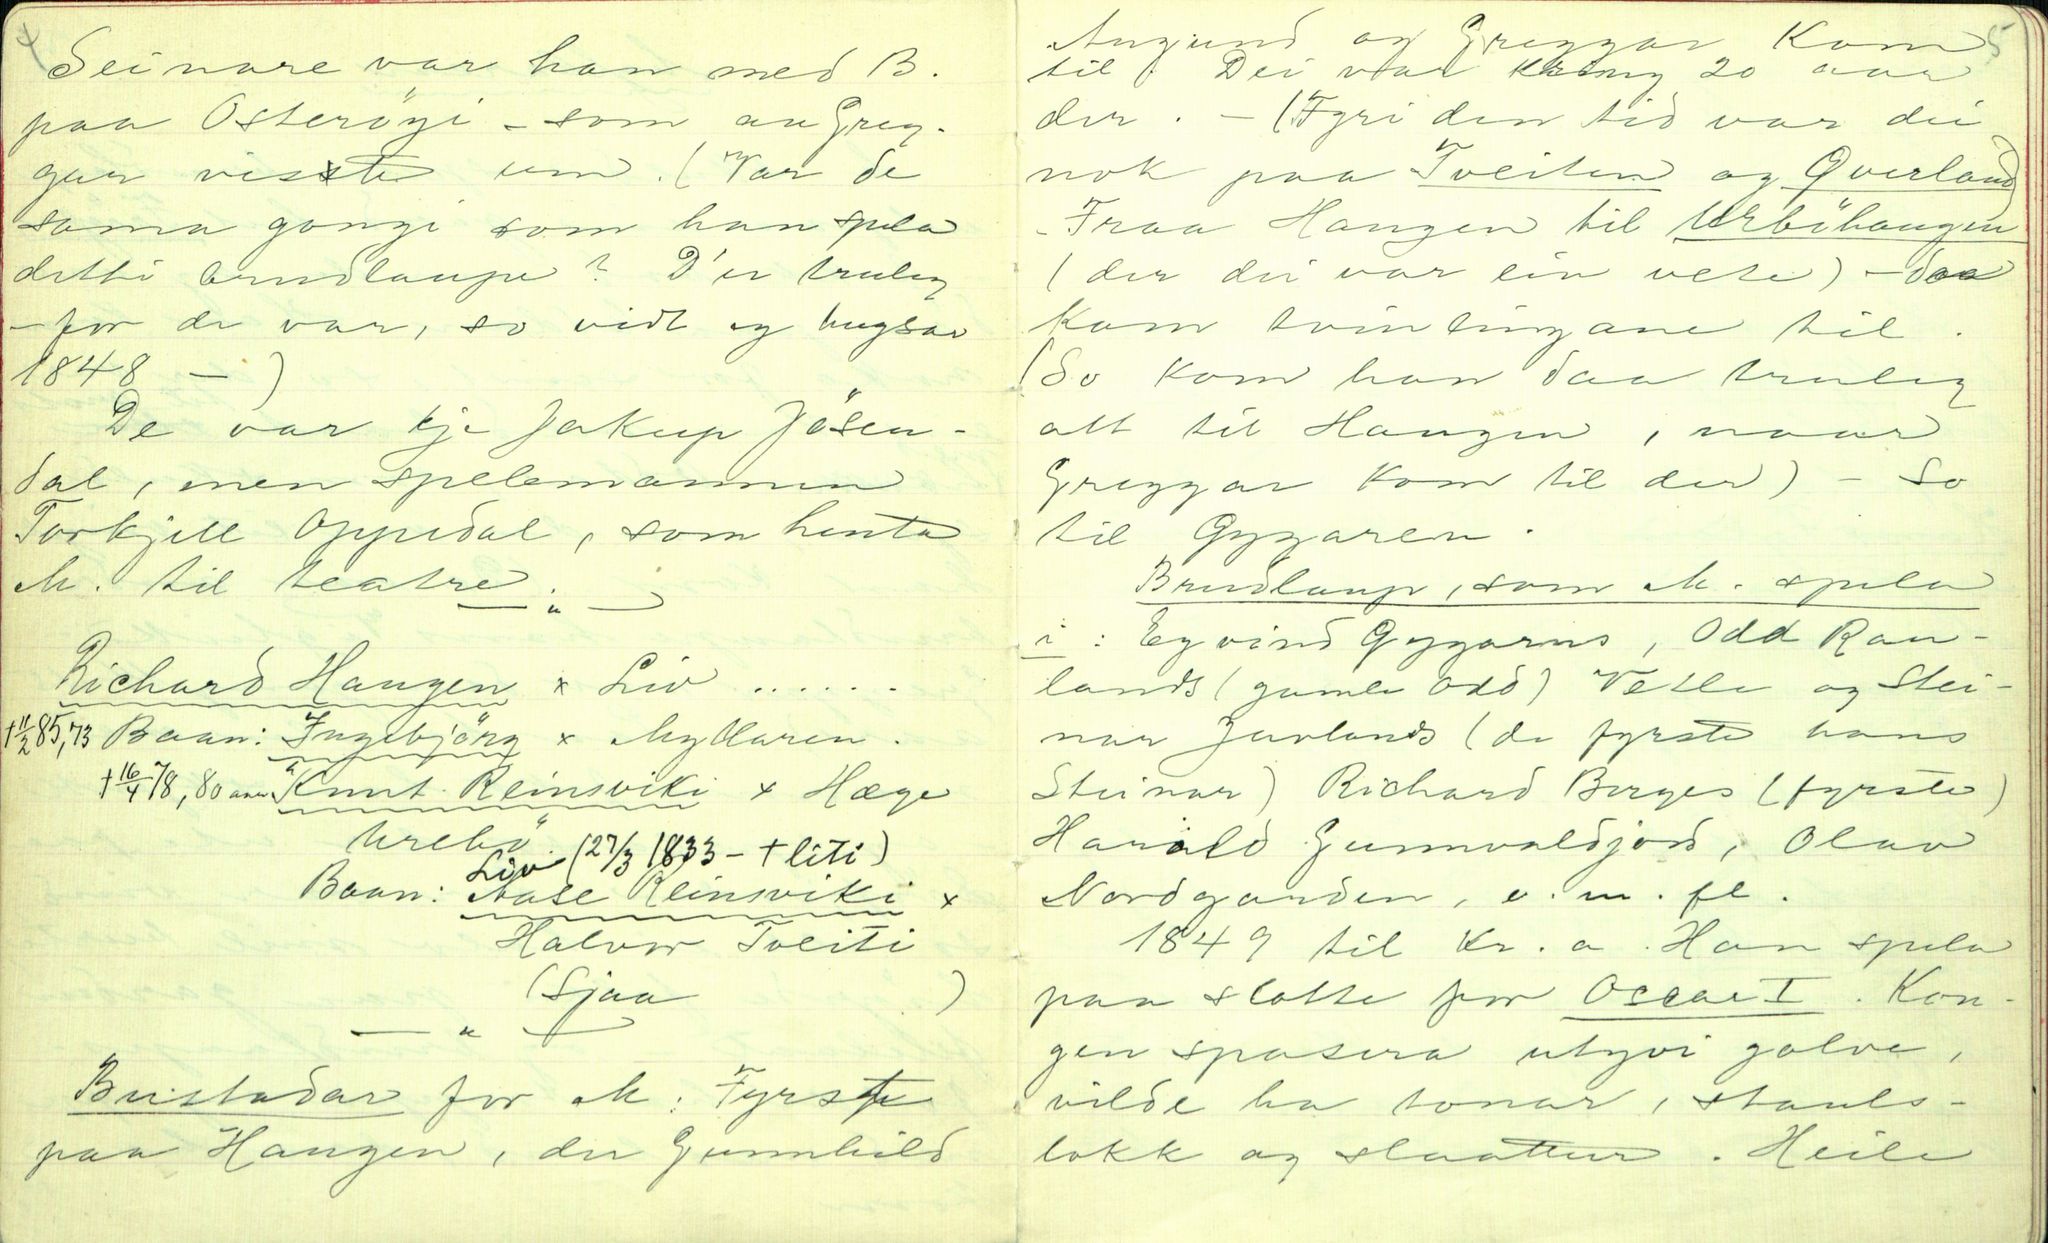 4
Seinare var han med B.
paa Osterøyi – som au Greg-
gar visste um. (Var de
sama gongji som han spela
detti brudlaupe? D'er truleg
– for de var, so vidt eg hugsar
1848 –)
De var kje Jakup Jøsen-
dal, men spelemannen
Torkjell Oppedal, som henta
M. til teatre.
— " —
Richard Haugen x Liv ......
† 11/2 85, 73 Baan: Ingebjørg x Myllaren.
† 16/4 78, 80 aar " Knut Reinsviki x Hæge
Urebø.
Liv (27/3 1833 – † liti)
Baan: Aase Reinsviki x
Halvor Tveiti
(Sjaa )
— " —
Bustadar for M: Fyrste
paa Haugen, der Gunnhild
5
Augund og Greggar kom
til. Dei var kring 20 aar
der. – (Fyri den tid var dei
nok paa Tveiten og Qverland)
– Fraa Haugen til Urbøhaugen
(der dei var ein vete) – daa
kom tvinlingane til.
(So kom han daa truleg
att til Haugen, naar
Greggar kom til der) – So
til Gyggaren.
Brudlaup, som M. spela
i: Eyvind Gyggarns, Odd Rau-
lands (gamle Odd) Vetle og Stei-
nar Juvlands (de fyrste hans
Steinar) Richard Berges (fyrste)
Harald Gunnvaldjord, Olav
Nordgarden, o. m. fl.
1849 til Kr. a. Han spela
paa slotte for Oscar I. Kon-
gen spasera utyvi golve,
vilde ha tonar, stauls-
lokk og slaatter. Heile